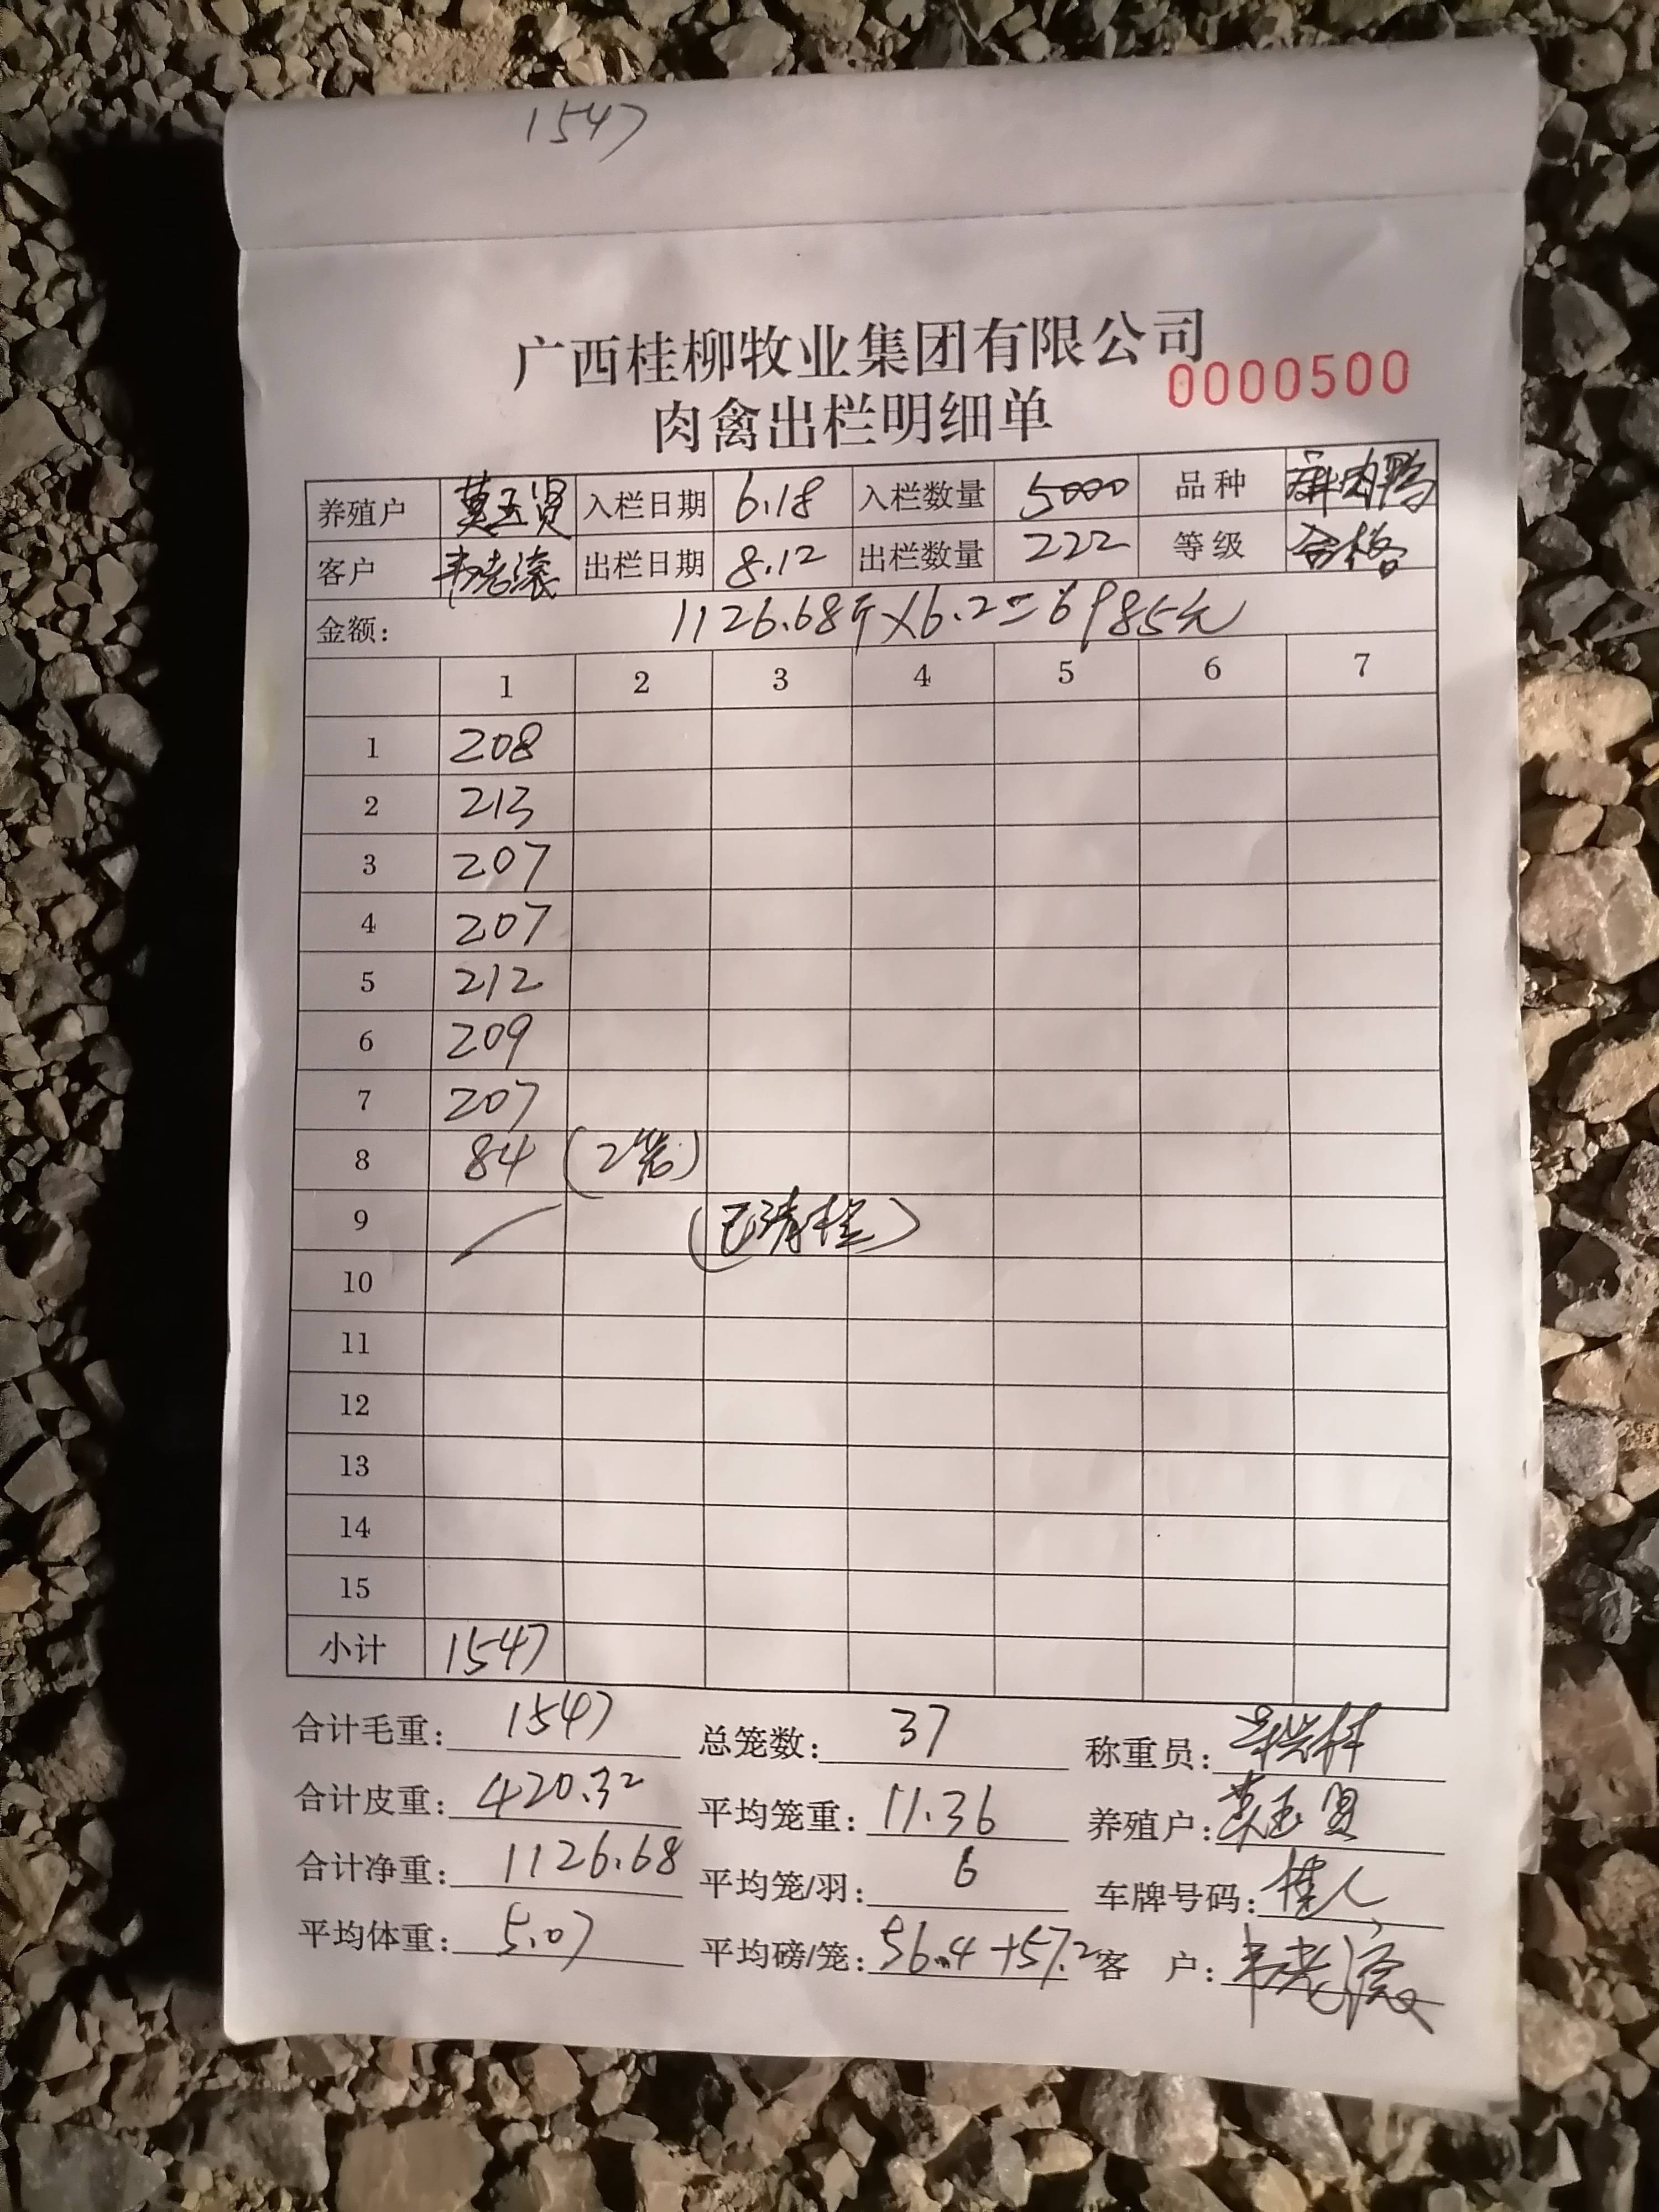 1547
广西桂柳牧业集团有限公司
0000500
肉禽出栏明细单
养殖户 莫玉贤 入栏日期 6.18 入栏数量 5000 品种 麻肉鸭
客户 韦老滚 出栏日期 8.12 出栏数量 222 等级 合格
金额: 1126.68斤×6.2=6985元
1 2 3 4 5 6 7
1 208
2 213
3 207
4 207
5 212
6 209
7 207
8 84 (2笼)
9 (已清栏)
10
11
12
13
14
15
小计 1547
合计毛重: 1547 总笼数: 37 称重员:
合计皮重: 420.32 平均笼重: 11.36 养殖户: 莫玉贤
合计净重: 1126.68 平均笼/羽: 6 车牌号码:
平均体重: 5.07 平均磅/笼: 56.4+57.2 客 户: 韦老滚